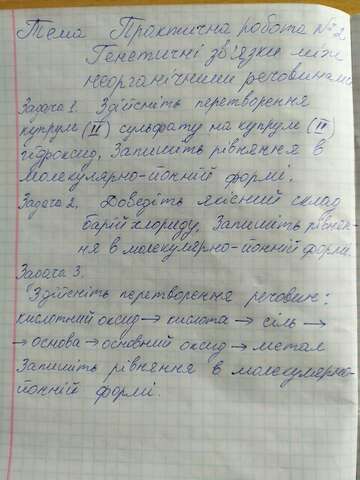 Тема Практична робота №2.
Генетичні зв'язки між
неорганічними речовинами
Задача 1. Здійсніть перетворення
купрум (II) сульфату на купрум (II)
гідроксид, Запишіть рівняння в
молекулярно-йонній формі.
Задача 2. Доведіть якісний склад
барій хлориду, Запишіть рівнян-
ня в молекулярно-йонній формі.
Задача 3.
Здійсніть перетворення речовин:
кислотний оксид → кислота → сіль →
→ основа → основний оксид → метал
Запишіть рівняння в молекулярно-
йонній формі.